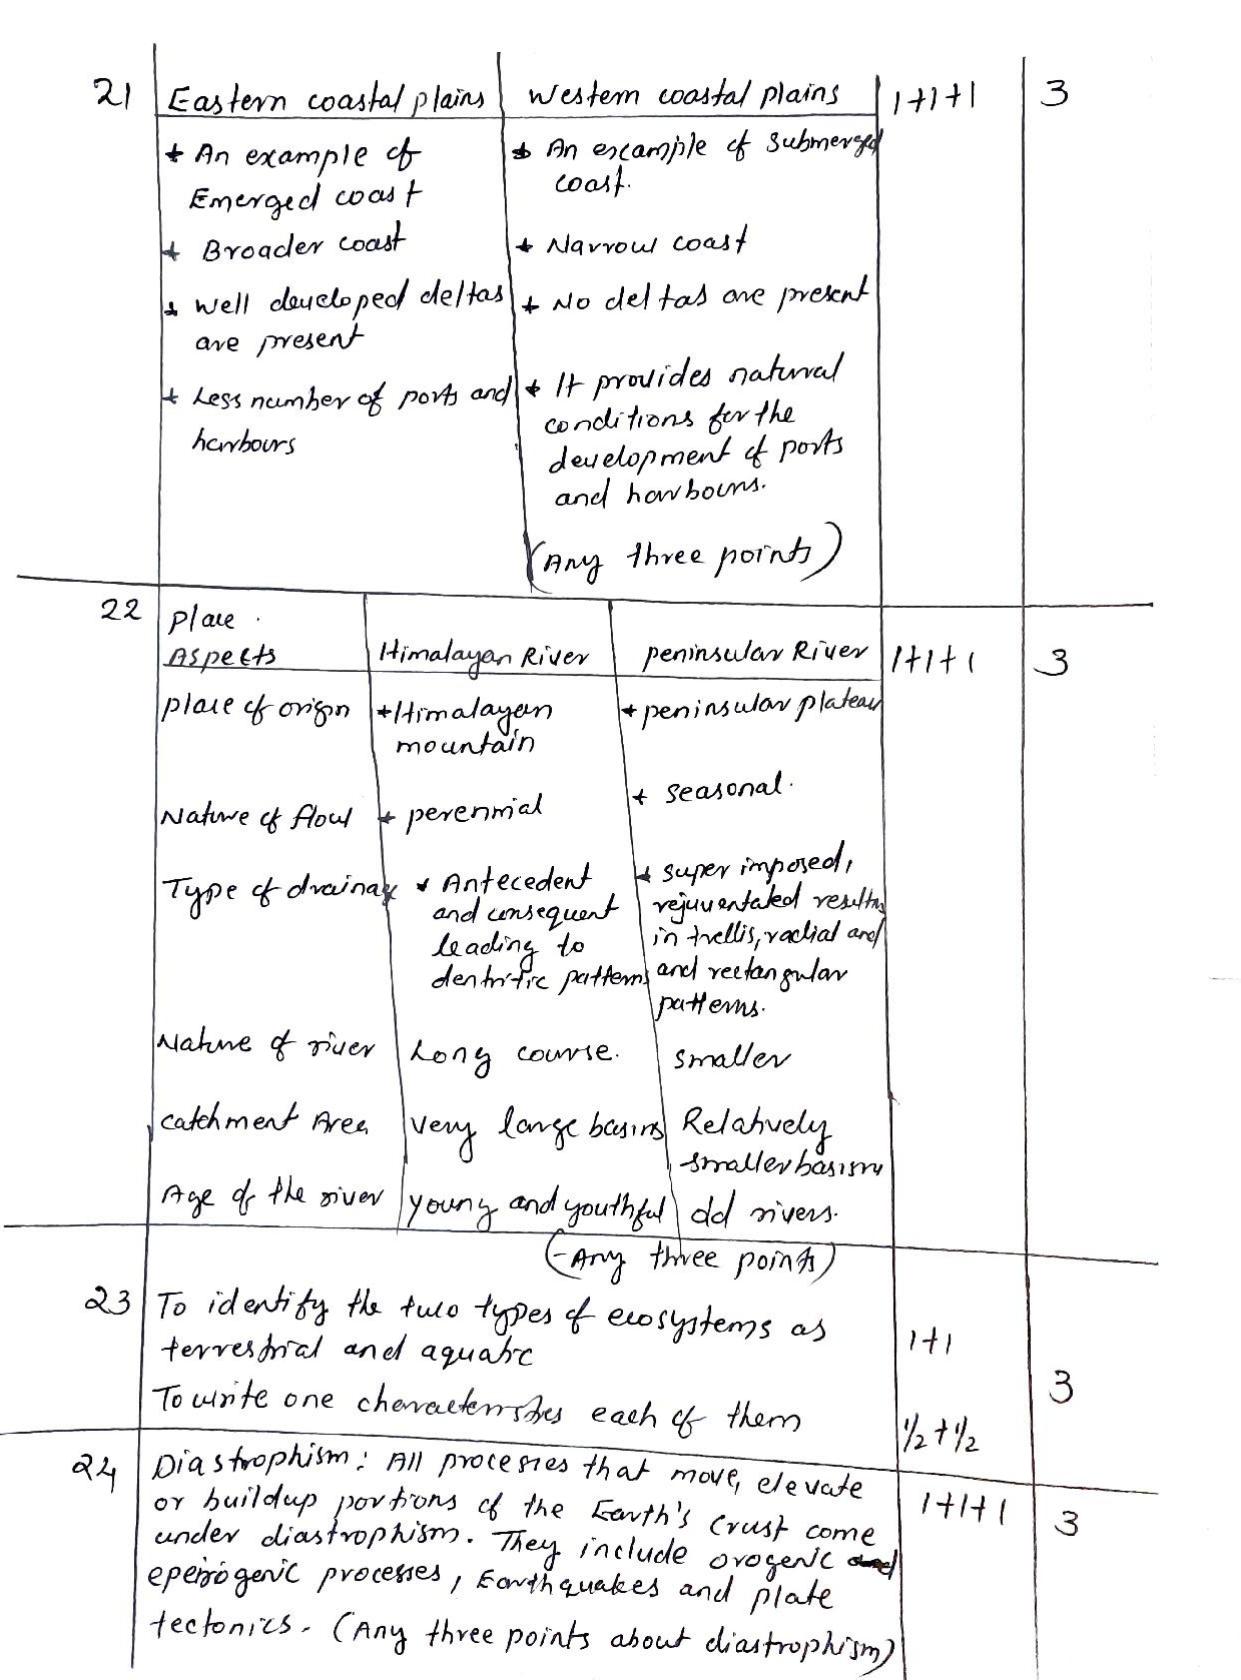 21 Eastern coastal plains Western coastal plains 1+1+1 3
+ An example of + An example of Submerged
Emerged coast coast.
+ Broader coast + Narrow coast
+ Well developed deltas + No deltas are present
are present
+ Less number of ports and + It provides natural
harbours conditions for the
development of ports
and harbours.
(Any three points)
22 Place .
Aspects Himalayan River peninsular River 1+1+1 3
place of origin + Himalayan + peninsular plateau
mountain
Nature of flow + perennial + seasonal.
Type of drainage + Antecedent + super imposed,
and consequent rejuventated resulting
leading to in trellis, radial and
dentritic patterns and rectangular
patterns.
Nature of river Long course. smaller
catchment Area very large basins Relatively
smaller basism
Age of the river young and youthful old rivers.
(Any three points)
23 To identify the two types of ecosystems as
terrestrial and aquatic 1+1
To write one characteristics each of them 3
1/2+1/2
24 Diastrophism: All processes that move, elevate
or buildup portions of the Earth's crust come 1+1+1 3
under diastrophism. They include orogenic
epeirogenic processes, Earthquakes and plate
tectonics. (Any three points about diastrophism)